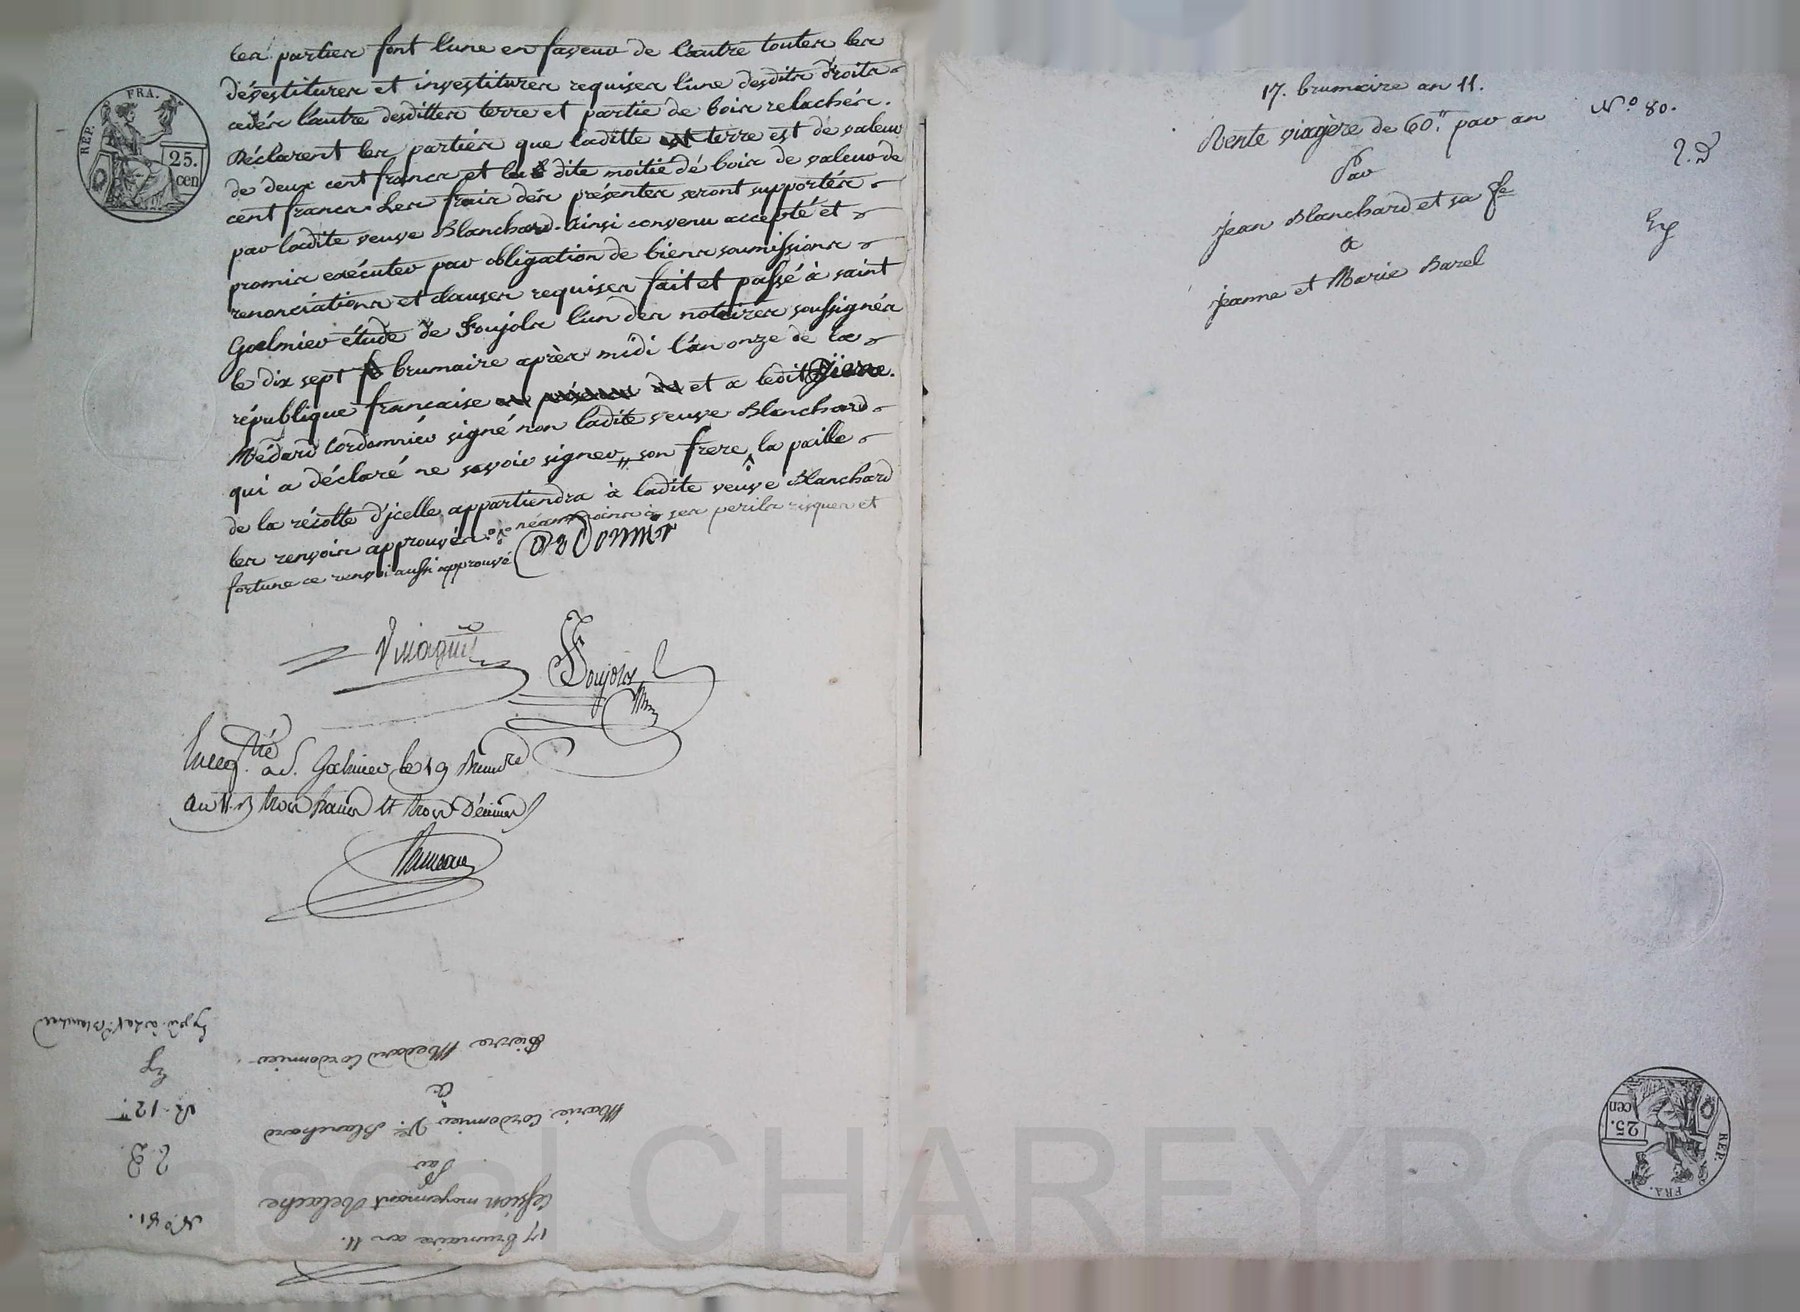 les parties font l'une en faveur de l'autre toutes les
dévestitures et investitures requises l'une desdits droits
cédés l'autre desdittes terre et partie de bois relachés.
Déclarent les parties que laditte terre est de valeur
de deux cent francs et la dite moitié de bois de valeur de
cent francs. Les frais des présentes seront supportés
par ladite veuve Blanchard. Ainsi convenu accepté et
promis exécuter par obligation de biens soumissions
renonciations et clauses requises fait et passé à saint
Galmier étude de Foujols l'un des notaires soussignés
le dix sept brumaire après midi l'an onze de la
république francaise et a ledit Pierre
Médard Cordonnier signé non ladite veuve Blanchard
qui a déclaré ne savoir signer " son frere, la paille
de la récolte d'jcelle appartiendra à ladite veuve Blanchard
les renvois approuvés. néammoins à ses perils risques et
fortune ce renvoi aussi approuvé
Foujols
Enreg.tré a S. Galmier le 19 Brumre
an 11. R trois francs et trois décimes
Pierre Medard Cordonnier
à
Marie Cordonnier Ve. Blanchard
Par
Cession moyennant Relache
17 brumaire an 11.
N.o 81.
2. D.
R. 12
REP. FRA.
25.
cen
17. brumaire an 11.
N.o 80.
Rente viagère de 60." par an
2. D
Par
Jean Blanchard et sa fe
Ex
a
Jeanne et Marie Barel
REP. FRA.
25.
cen
ascal CHAREYRON